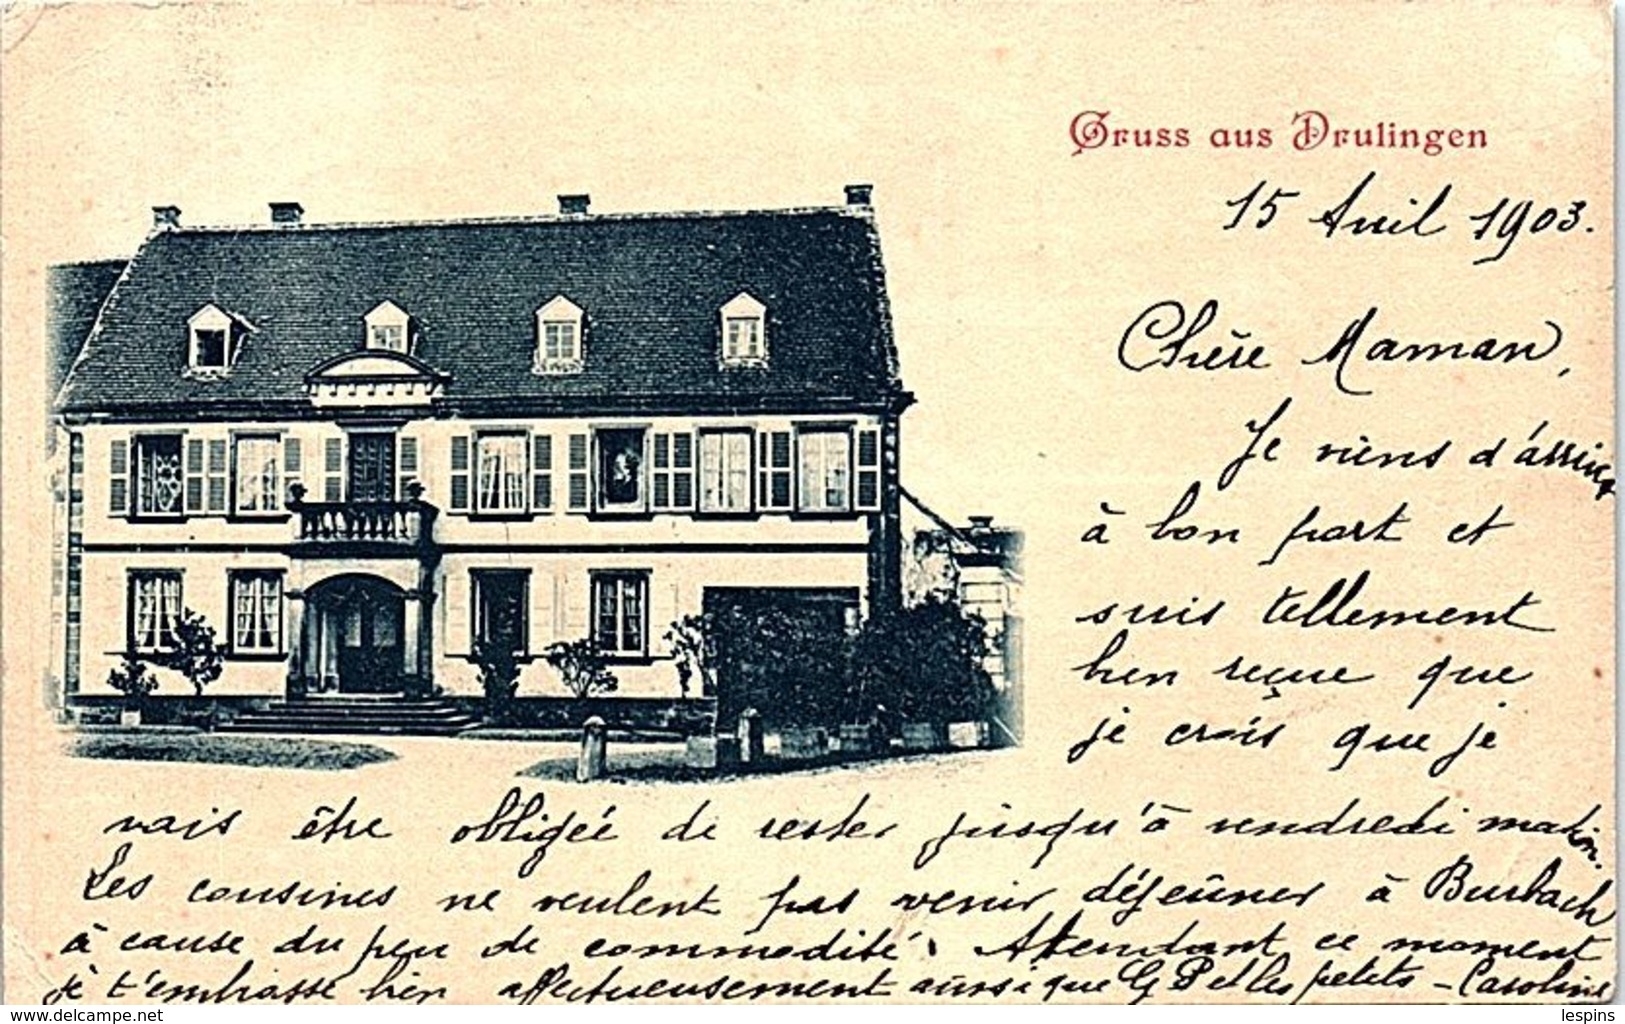 Gruss aus Drulingen
15 Avril 1903.
Chère Maman,
Je viens d'arriver
à bon port et
suis tellement
bien reçue que
je crois que je
vais être obligée de rester jusqu'à vendredi matin.
Les cousines ne veulent pas venir déjeûner à Burbach
à cause du peu de commodité. Attendant ce moment
je t'embrasse bien affectueusement ainsi que G P et les petits - Caroline
delcampe.net
lespins